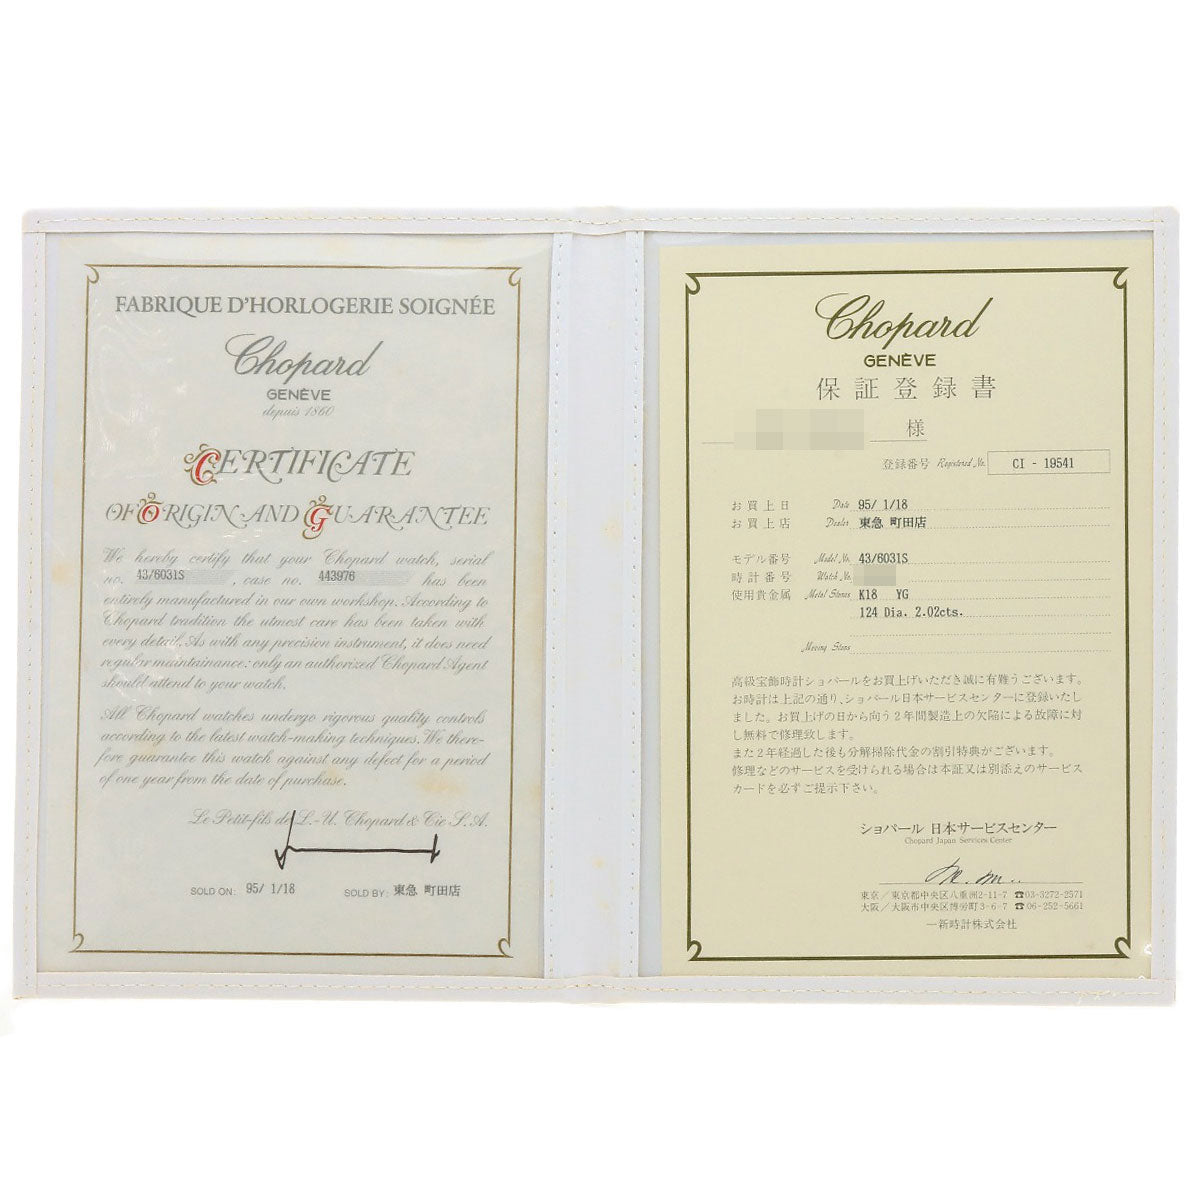 FABRIQUE D'HORLOGERIE SOIGNÉE
Chopard
GENÈVE
depuis 1860
CERTIFICATE
OF ORIGIN AND GUARANTEE
We hereby certify that your Chopard watch, serial
no. 43/6031S , case no. 443976 has been
entirely manufactured in our own workshop. According to
Chopard tradition the utmost care has been taken with
every detail. As with any precision instrument, it does need
regular maintainance: only an authorized Chopard Agent
should attend to your watch.
All Chopard watches undergo rigorous quality controls
according to the latest watch-making techniques. We there-
fore guarantee this watch against any defect for a period
of one year from the date of purchase.
Le Petit-fils de L.-U. Chopard & Cie S.A.
SOLD ON: 95/ 1/18 SOLD BY: 東急 町田店
Chopard
GENÈVE
保証登録書
様
登録番号 Registered No. CI - 19541
お買上日 Date 95/ 1/18
お買上店 Dealer 東急 町田店
モデル番号 Model No. 43/6031S
時計番号 Watch No.
使用貴金属 Metal Stones K18 YG
124 Dia. 2.02cts.
Moving Stone
高級宝飾時計ショパールをお買上げいただき誠に有難うございます。
お時計は上記の通り、ショパール日本サービスセンターに登録いたし
ました。お買上げの日から向う2年間製造上の欠陥による故障に対
し無料で修理致します。
また2年経過した後も分解掃除代金の割引特典がございます。
修理などのサービスを受けられる場合は本証又は別添えのサービス
カードを必ずご提示下さい。
ショパール 日本サービスセンター
Chopard Japan Services Center
東京／東京都中央区八重洲2-11-7 ☎03-3272-2571
大阪／大阪市中央区博労町3-6-7 ☎06-252-5661
一新時計株式会社